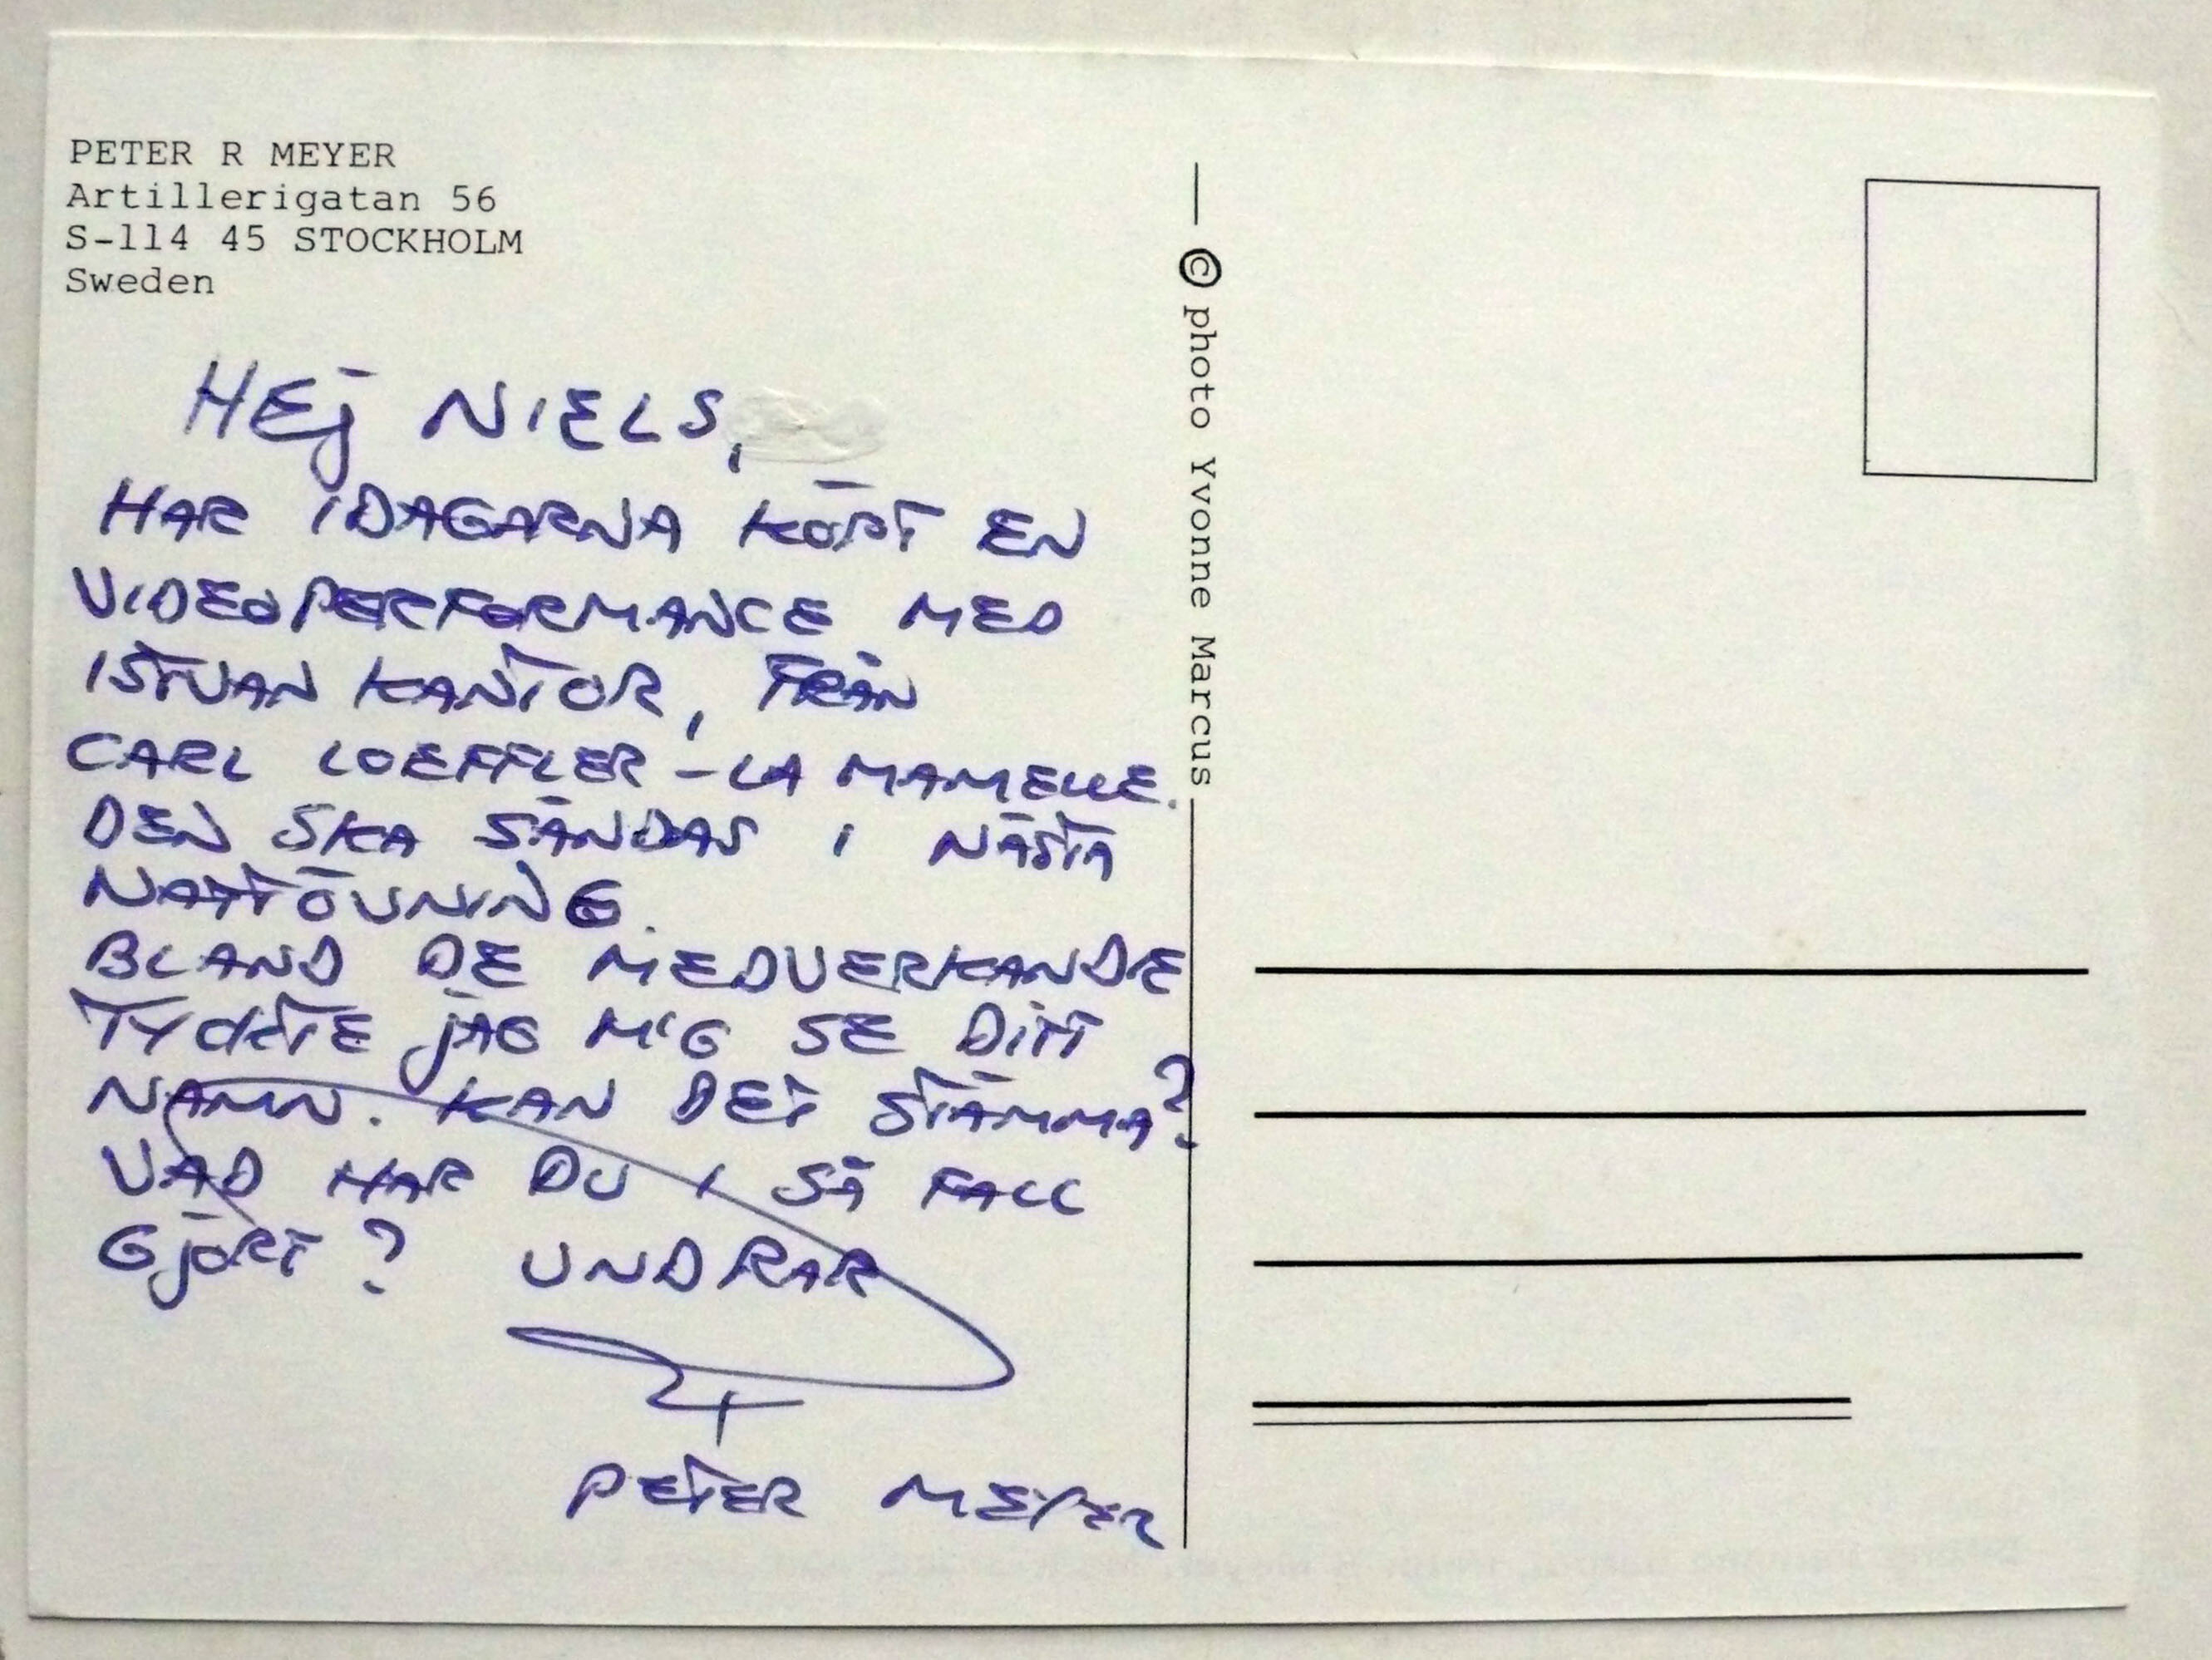 PETER R MEYER
Artillerigatan 56
S-114 45 STOCKHOLM
Sweden
HEj NIELS,
HAR IDAGARNA KÖRT EN
VIDEOPERFORMANCE MED
ISTVAN KANTOR, FRÅN
CARL LOEFFLER - LA MAMELLE.
DEN SKA SÄNDAS I NÄSTA
NATTÖVNING.
BLAND DE MEDVERKANDE
TYCKTE jAG MIG SE DITT
NAMN. KAN DET STÄMMA?
VAD HAR DU I SÅ FALL
GjORT? UNDRAR
PETER MEYER
© photo Yvonne Marcus